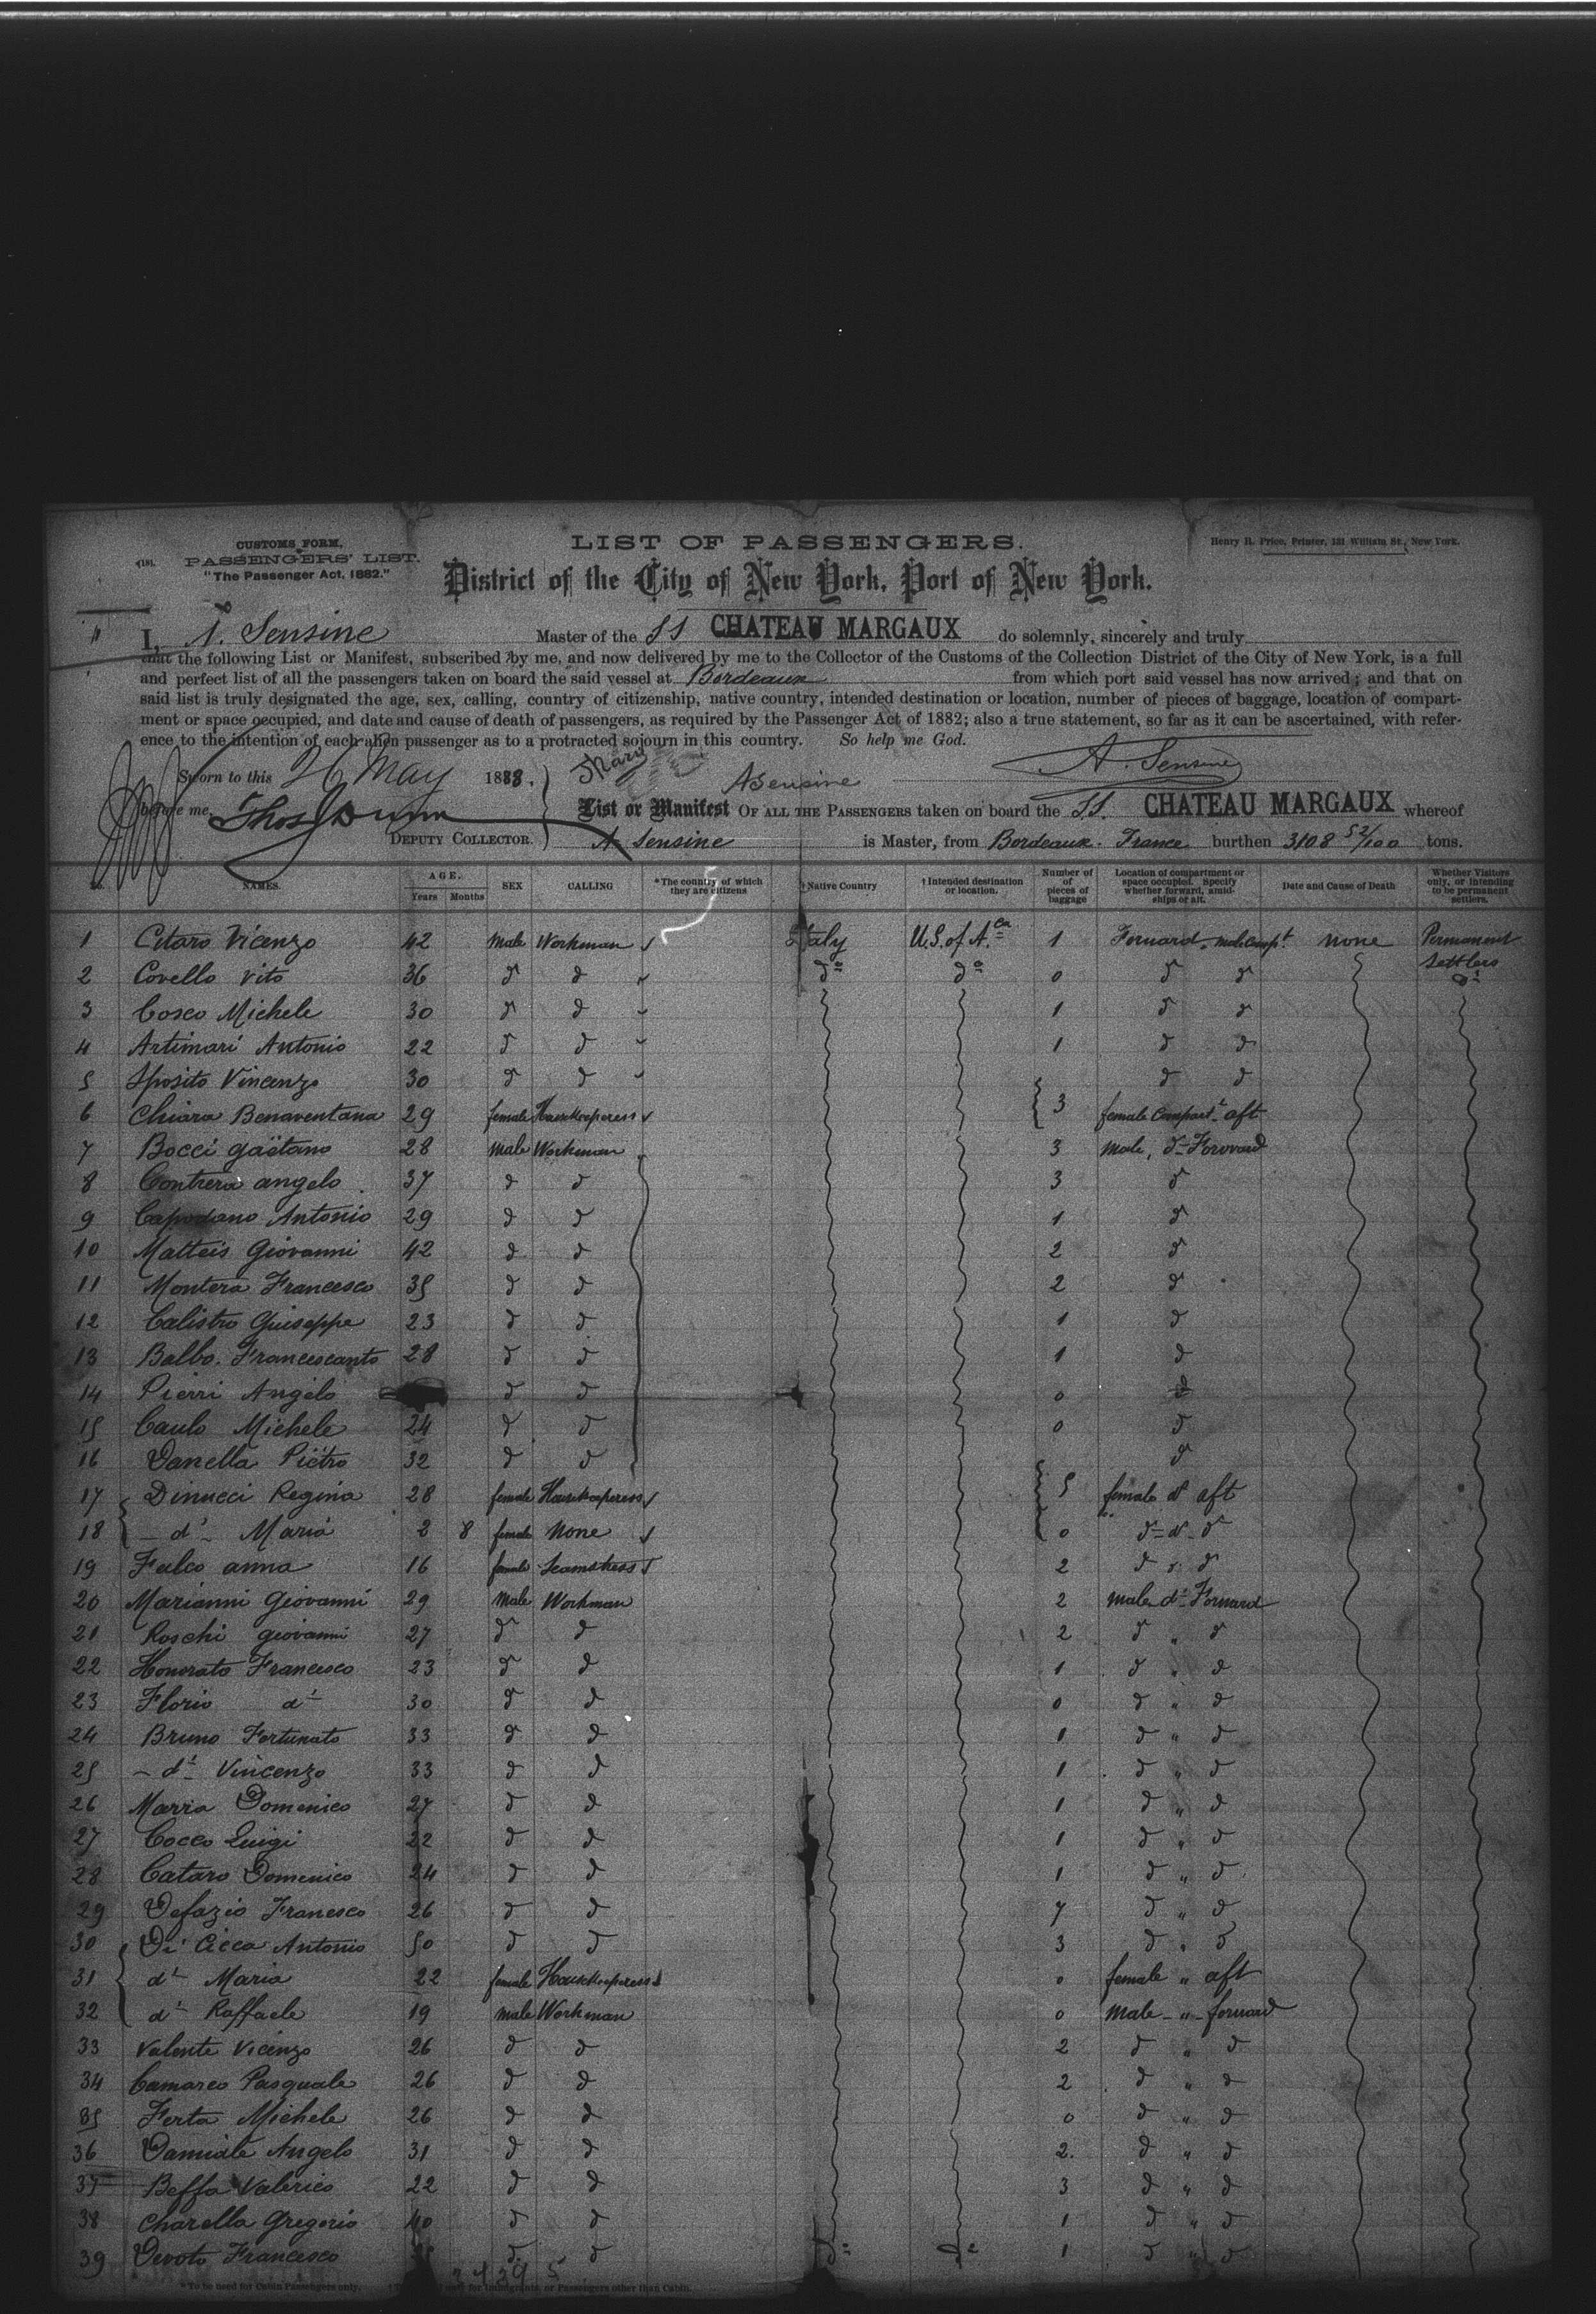 CUSTOMS FORM,
PASSENGERS' LIST.
"The Passenger Act, 1882."
LIST OF PASSENGERS.
Henry H. Price, Printer, 131 William St., New York.
District of the City of New York, Port of New York.
I, A. Sensine Master of the SS CHATEAU MARGAUX do solemnly, sincerely and truly
that the following List or Manifest, subscribed by me, and now delivered by me to the Collector of the Customs of the Collection District of the City of New York, is a full
and perfect list of all the passengers taken on board the said vessel at Bordeaux from which port said vessel has now arrived; and that on
said list is truly designated the age, sex, calling, country of citizenship, native country, intended destination or location, number of pieces of baggage, location of compart-
ment or space occupied, and date and cause of death of passengers, as required by the Passenger Act of 1882; also a true statement, so far as it can be ascertained, with refer-
ence to the intention of each alien passenger as to a protracted sojourn in this country. So help me God.
Sworn to this 26 May 1888. A Sensine A. Sensine
before me, Thos Dunn
List or Manifest OF ALL THE PASSENGERS taken on board the SS. CHATEAU MARGAUX whereof
DEPUTY COLLECTOR. A. Sensine is Master, from Bordeaux. France burthen 3108 52/100 tons.
No. NAMES. AGE. Years Months SEX CALLING *The country of which they are citizens †Native Country †Intended destination or location. Number of pieces of baggage Location of compartment or space occupied. Specify whether forward, amidships or aft. Date and Cause of Death Whether Visitors only, or intending to be permanent settlers.
1 Citaro Vicenzo 42 male Workman Italy U.S. of A.ca 1 Forward, male Compt. none Permanent Settlers
2 Covello Vito 36 d d do do 0 d d do
3 Cosco Michele 30 d d 1 d d
4 Artimari Antonio 22 d d 1 d d
5 Sposito Vincenzo 30 d d d d
6 Chiara Benaventana 29 female Housekeeperess 3 female Compart. aft
7 Bocci Gaëtano 28 male Workman 3 male, do Forward
8 Contrera angelo 37 d d 3 d
9 Capodano Antonio 29 d d 1 d
10 Matteis Giovanni 42 d d 2 d
11 Montera Francesco 35 d d 2 d
12 Calistro Guiseppe 23 d d 1 d
13 Balbo. Francescanto 28 d d 1 d
14 Pierri Angelo d d 0 d
15 Caulo Michele 24 d d 0 d
16 Danella Pietro 32 d d d
17 Dinucci Regina 28 female Housekeeperess 5 female d aft
18 do Maria 2 8 female None 0 d d d
19 Falco anna 16 female Seamstress 2 d d d
20 Marianni Giovanni 29 male Workman 2 male do Forward
21 Roschi giovanni 27 d d 2 d " d
22 Honorato Francesco 23 d d 1 d " d
23 Florio do 30 d d 0 d " d
24 Bruno Fortunato 33 d d 1 d " d
25 do Vincenzo 33 d d 1 d " d
26 Marra Domenico 27 d d 1 d " d
27 Cocco Luigi 22 d d 1 d " d
28 Cataro Domenico 24 d d 1 d " d
29 Defazio Francesco 26 d d 7 d " d
30 Di Cicca Antonio 50 d d 3 d " d
31 do Maria 22 female Housekeeperess 0 female " aft
32 do Raffaele 19 male Workman 0 male " forward
33 Valente Vicenzo 26 d d 2 d " d
34 Camareo Pasquale 26 d d 2 d " d
35 Ferta Michele 26 d d 0 d " d
36 Damiale Angelo 31 d d 2. d " d
37 Beffa Valerico 22 d d 3 d " d
38 Charella Gregorio 40 d d 1 d " d
39 Devoto Francesco d d do do 1 d " d
*To be used for Cabin Passengers only. for Immigrants, or Passengers other than Cabin.